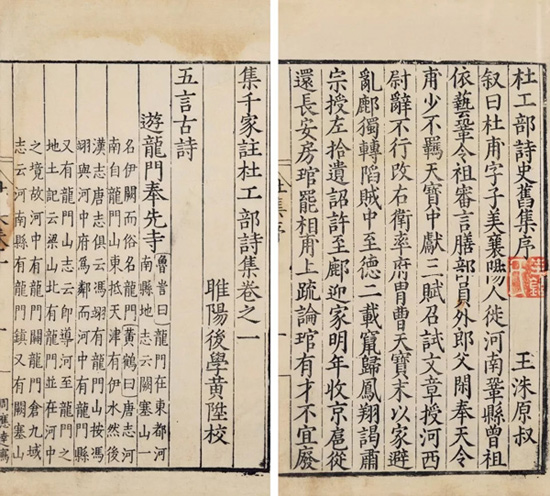 杜工部詩史舊集序
王洙原叔
叙曰杜甫字子美襄陽人徙河南鞏縣曾祖
依藝鞏令祖審言膳部員外郎父閑奉天令
甫少不羈天寶中獻三賦召試文章授河西
尉辭不行改右衛率府胄曹天寶末以家避
亂鄜獨轉陷賊中至德二載竄歸鳳翔謁肅
宗授左拾遺詔許至鄜迎家明年收京扈從
還長安房琯罷相甫上疏論琯有才不宜廢
集千家註杜工部詩集卷之一
睢陽後學黃陞校
五言古詩
遊龍門奉先寺
魯訔曰龍門在東都河
南縣地志云闕塞山一
名伊闕而俗名龍門黃鶴曰唐志河
南自龍門山東抵天津有伊水然後
漢志唐志俱云馮翊有龍門山按馮
翊與河中府為鄰而河中有龍門縣
又有龍門山志云即導河至龍門之
地土記云梁山北有龍門並在河中
之境故河中有龍門關龍門倉九域
志云河南縣有龍門鎮又有闕塞山